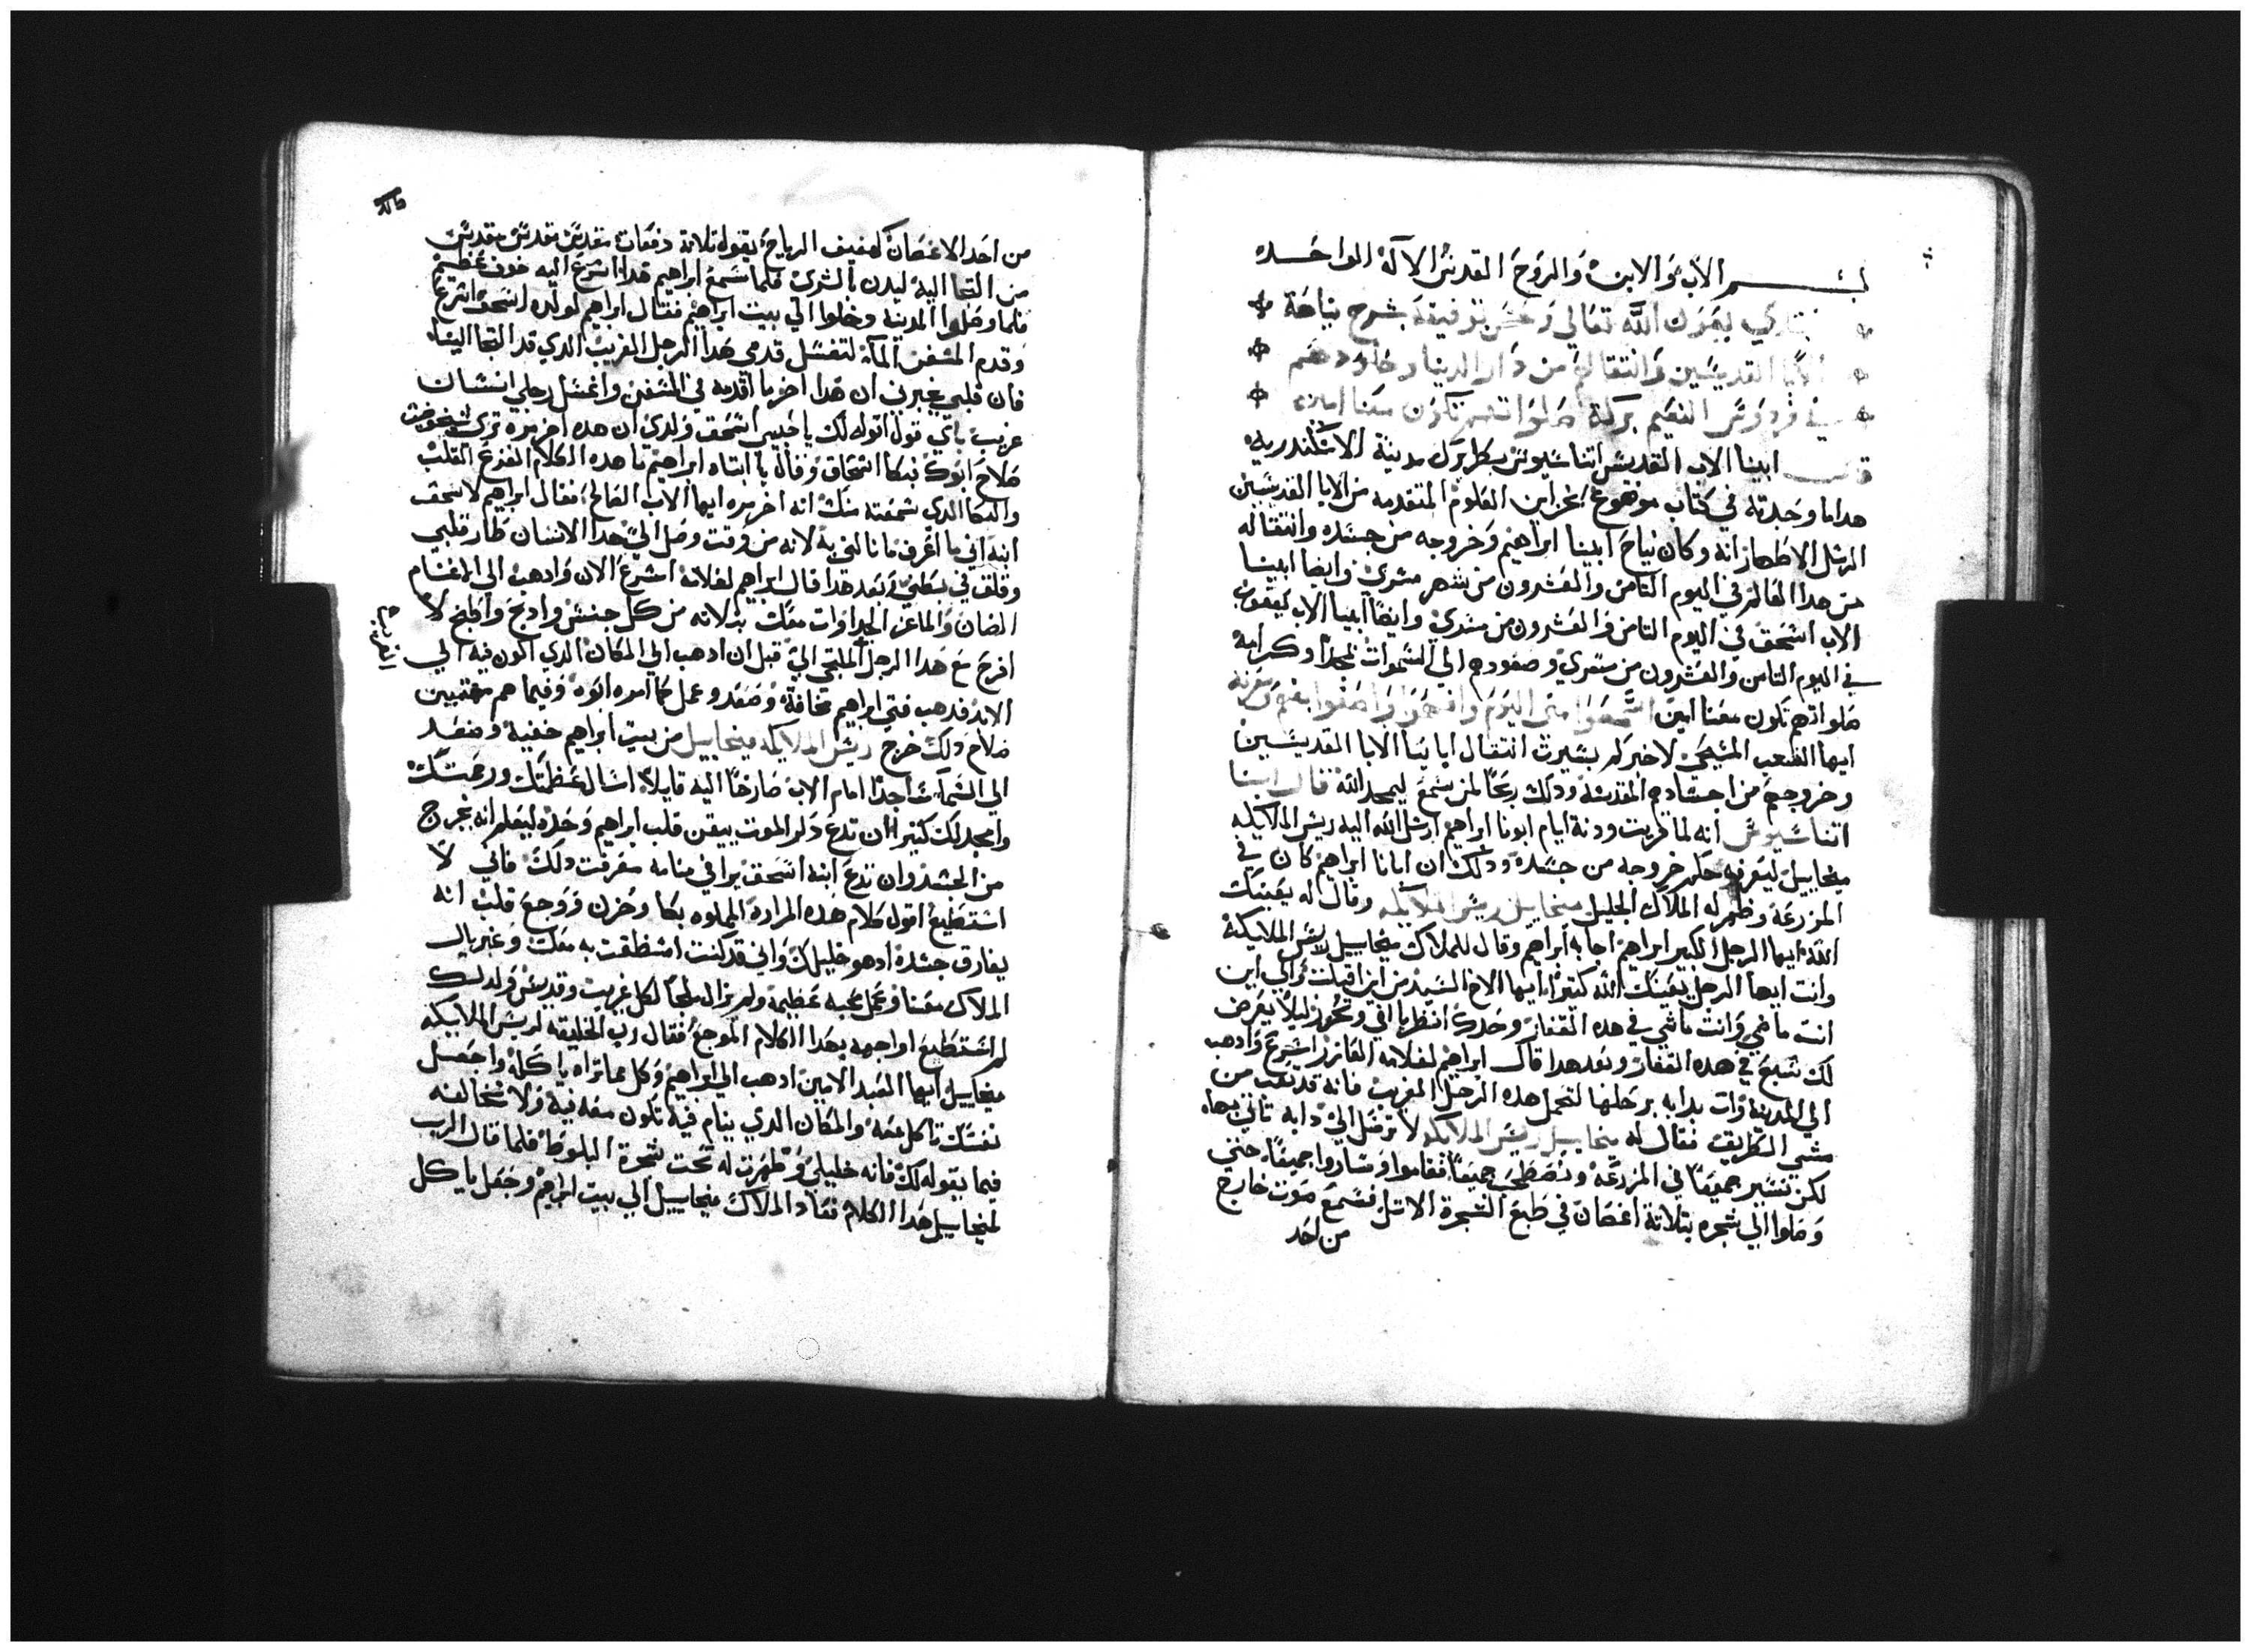 بســـــم الاب والابن والروح القدس الاله الواحــده
نبتدي بعون الله تعالي وحسن توفيقه بشرح نياحة
الابا القدسين وانتقالهم من دار الدنيا وخلودهم
في فردوس النعيم بركة صلواتهم تكون معنا امين
قال ابينا الاب القديس اتناسيوس بطريرك مدينة الاسكندريه
هداما وجدته في كتاب موضوع بخزاين العلوم المتقدمه من الابا القديسين
الرسل الاطهار انه وكان نياح ابينا ابراهيم وخروجه من جسده وانتقاله
من هدا العالم في اليوم التامن والعشرون من شهر مسري وايضا ابينا
الاب اسحق في اليوم التامن والعشرون من مسري وايضا ابينا الاب يعقوب
في اليوم التامن والعشرون من مسري وصعودهم الي السموات بمجدا وكرامة
صلواتهم تكون معنا امين اسمعوا مني اليوم وافهموا واصغوا بفهم ومعرفه
ايها الشعب المسيحي لاخبركم بسيرت انتقال ابائنا الابا القديسين
وخروجهم من اجسادهم المقدسه ودلك ربحا لمن يسمع ليمجد الله قال ابينا
اتناسيوس انه لما قربت ودنة ايام ابونا ابراهيم ارسل الله اليه ريس الملايكه
ميخاييل ليعرفه حكم خروجه من جسده ودلك ان ابانا ابراهيم كان في
المزرعة وظهر له الملاك الجليل ميخاييل ريس الملايكه وقال له يعينك
الله ايها الرجل الكبير ابراهيم اجابه ابراهيم وقال للملاك ميخاييل ريس الملايكة
وانت ايها الرجل يعينك الله كتيرا ايها الاخ السيد من اين اقبلت والي اين
انت ماضي وانت ماشي في هده القفار وحدك انظر يا اخي وتحرز ليلا يعرض
لك سبع في هده القفار وبعد هدا قال ابراهيم لغلامه العازر اسرع وادهب
الي المدينة وات بدابه برحلها لتحمل هده الرجل الغريب فانه قد تعب من
مشي الطريق فقال له ميخاييل ريس الملايكه لا ترسل الي دابه تاتي بها
لكن نسير جميعا في المزرعه ونصطحب جميعا فقاموا وساروا جميعا حتي
وصلوا الي شجره بتلاتة اغصان في طبع الشجرة الاتل فسمع صوت خارج
من احد
من احد الاغصان كهفيف الرياح يقوله تلاتة دفعات مقدس مقدس مقدس
من التجا اليه فلما سمع ابراهيم هدا اسرع اليه خوف عظيم
فلما وصلوا المدينة دخلوا الي بيت ابراهيم فقال ابراهيم لولده اسحق اسرع
وقدم المسفن المآء لتغسل قدمي هدا الرجل الغريب الدي قد التجا الينا
فان قلبي يخبرني ان هدا اخر ما اقدمه في المسفن واغسل رجلي انسان
غريب باي قول اقوله لك يا حبيبي اسحق ولدي ان هده اخر مره تري
صلاح ابوك فبكا اسحاق وقال يا ابتاه ابراهيم ما هده الكلام المفزع القلب
والبكا الدي سمعته منك انه اخر مره ايها الاب الصالح فقال ابراهيم لاسحق
ابنه اني ما اعرف ما نالني به لانه من وقت وصل الي هدا الانسان طار قلبي
وقلق في بطني وبعد هدا قال ابراهيم لغلامه اسرع الان وادهب الي الاغنام
الضان والماعز الجدا وات معك بتلاته من كل جنس وادبح واطبخ لا
افرح مع هدا الرجل الملتجي الي قبل ان ادهب الي المكان الدي اكون فيه الي
الابد فدهب فتي ابراهيم وصعد وعمل كما امره ابوه وفيما هم مهتمين
دلك خرج ريس الملايكه ميخاييل من بيت ابراهيم خفية وصعد
الي السما ساجدا امام الاب صارخا اليه قايلا اسال عظمتك ورحمتك
وامجد لك كتيرا ان تدع دكر الموت بيقن قلب ابراهيم وحده ليعلم انه يخرج
من الجسد وان تدع ابنه اسحق يرا في منامه معرفت دلك فاني لا
استطيع اقول كلام هده المرارة المملوه بكا وحزن ووجع قلب انه
يفارق جسده ادهو خليلك واني قد كنت استظفت به معك وغبريال
الملاك معنا وعمل محبه عظيمه ولم يزال ملجا لكل غريب وقديس ولدلك
لم استطيع اواجهه بهدا الكلام الموجع فقال رب الخليقه لريس الملايكه
ميخاييل ايها العبد الامين ادهب الي ابراهيم وكل مما تراه ياكله واجعل
نفسك تاكل معه والمكان الدي ينام فيه تكون معه فيه ولا تخالفه
فيما يقوله لك فانه خليلي وظهرت له تحت شجرة البلوط فلما قال الرب
لميخاييل هدا الكلام فعاد الملاك ميخاييل الي بيت ابراهيم وجعل ياكل